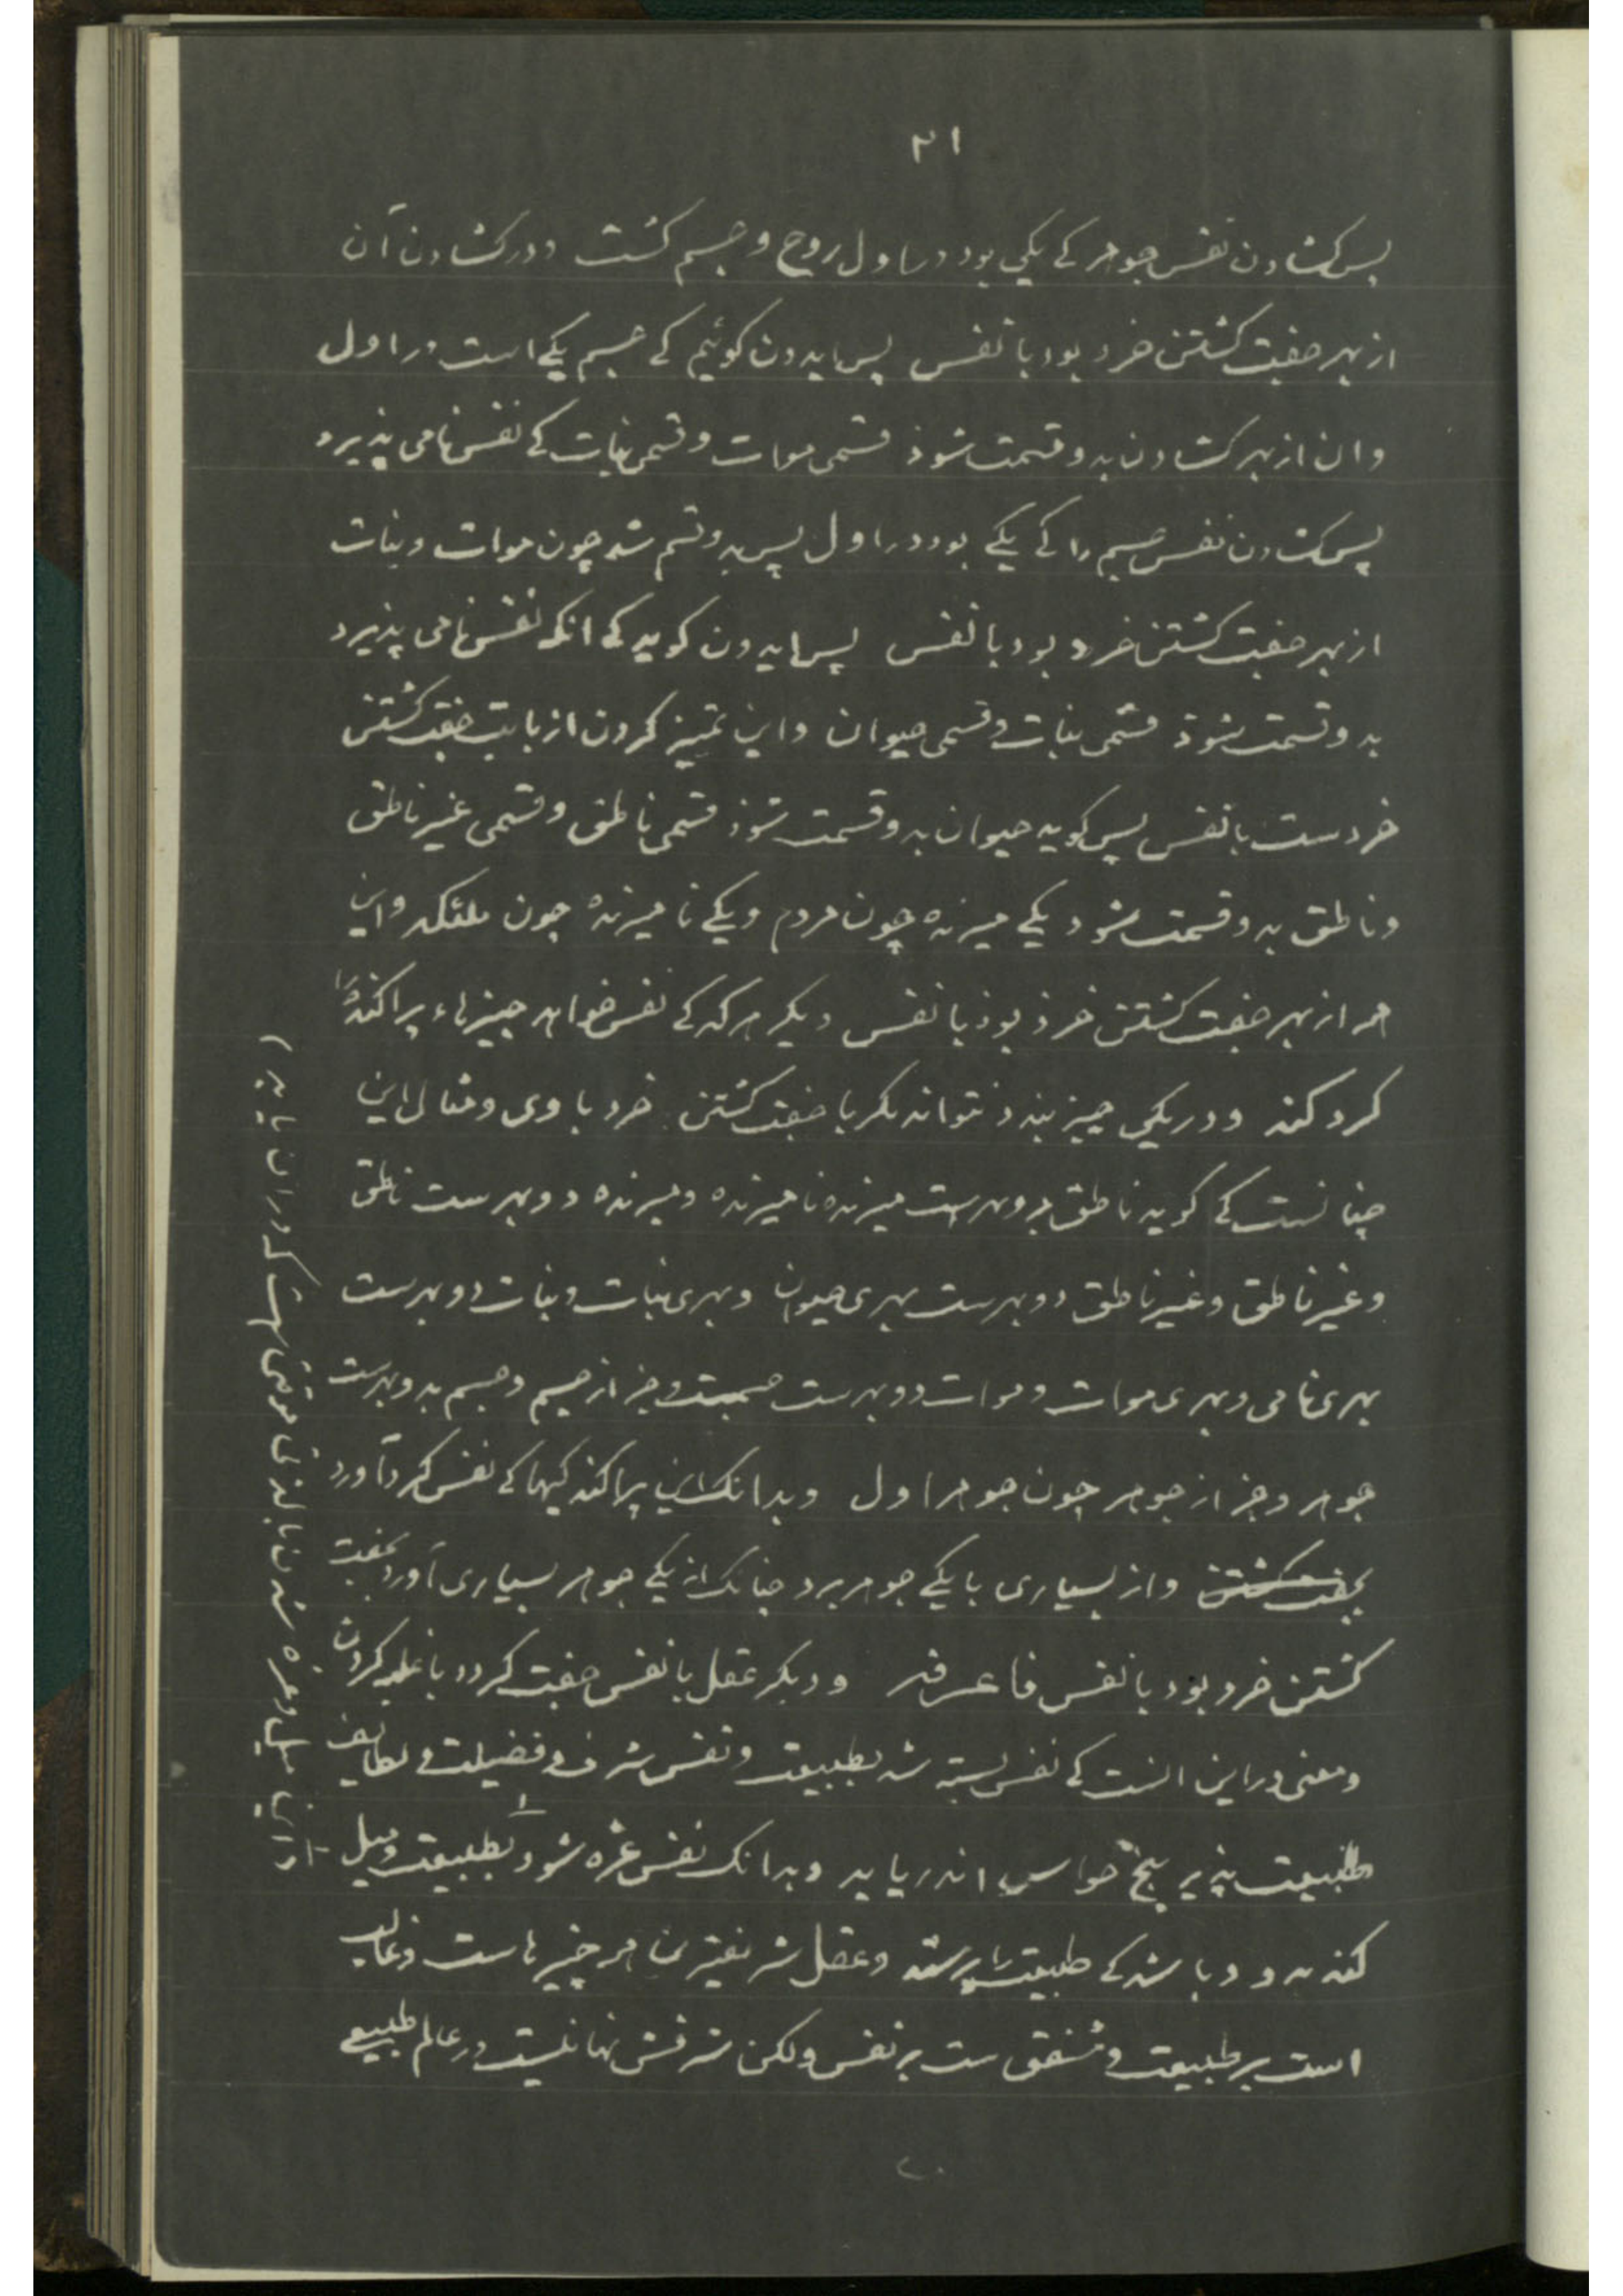 ۲۱
پس کشادن نفس جوهر کے یکی بود در اول روح و جسم کشت و در کشادن آن
از بهر جفت کشتن خرد بود با نفس پس ایدون کوئیم کے جسم یکے است در اول
وان از بهر کشادن بدو قسمت شوذ قسمی موات و قسمی نبات کے نفس نامی پذیرد
پس کشادن نفس جسم را کے یکے بود در اول پس بدو قسم شد چون موات و نبات
از بهر جفت کشتن خرد بود با نفس پس ایدون کوید کے انکه نفس نامی پذیرد
بدو قسمت شوذ قسمی نبات و قسمی حیوان و این تمیز کردن از بابت جفت کشتن
خردست با نفس پس کوید حیوان بدو قسمت شوذ قسمی ناطق و قسمی غیر ناطق
و ناطق بدو قسمت شود یکے میرنده چون مردم و یکے نا میرنده چون ملئکه و این
همه از بهر جفت کشتن خرذ بوذ با نفس دیکر هرکه کے نفس خواهد چیزهاء پراکنده را
کرد کند و در یکی چیز بندد نتواند مکر با جفت کشتن خرد با وی و مثال این
چنانست کے کوید ناطق بدو بهرست میرنده نا میرنده و میرنده دو بهرست ناطق
و غیر ناطق و غیر ناطق دو بهرست بهری حیوان و بهری نبات و نبات دو بهرست
بهری نامی و بهری موات و موات دو بهرست جسمست و جز از جسم و جسم بدو بهرست
جوهر و جز از جوهر چون جوهر اول و بدانک این پراکند کیها کے نفس کرد آورد
بجفت کشتن و از بسیاری با یکے جوهر برد چنانک از یکے جوهر بسیاری آورد بجفت
کشتن خرد بود با نفس فاعرفه و دیکر عقل با نفس جفت کردد با غلبه کردن
و معنی در این انست کے نفس بسته شد بطبیعت و نفس شرف و فضیلت و لطایف
طبیعت پذیر پنج حواس اندر یابد و بدانک نفس غره شود بطبیعت و میل
کند بدو و باشد کے طبیعت را پرستد و عقل شریفترین همه چیزهاست و غالب
است بر طبیعت و مشفق ست بر نفس ولکن شرفش نهانیست در عالم طبیعے